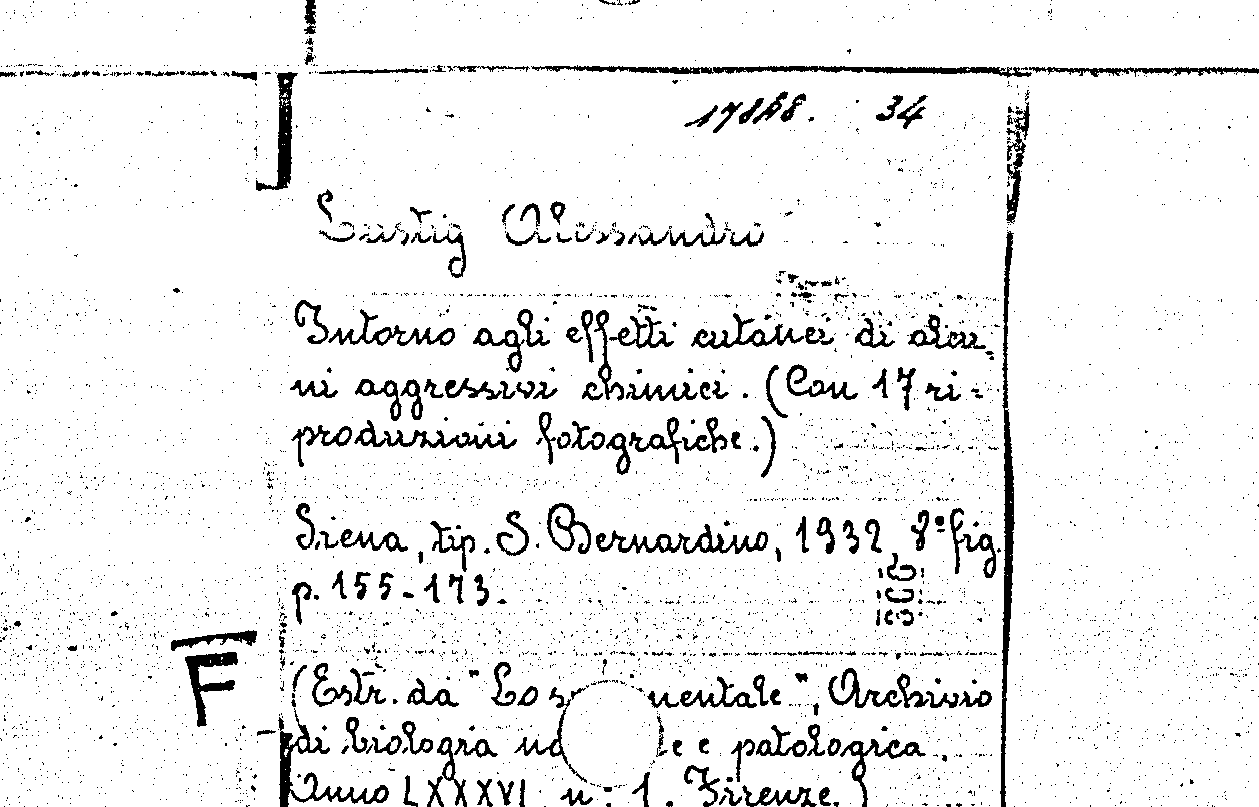 34
Lustig Alessandro
Intorno agli effetti cutanei di alcu-
ni aggressivi chimici. (Con 17 ri-
produzioni fotografiche.)
Siena, tip. S. Bernardino, 1932, 8° fig.
p. 155-173.
BCG
F
(Estr. da "Lo s mentale", Archivio
di biologia no le e patologica.
Anno LXXXVI n: 1. Firenze.)